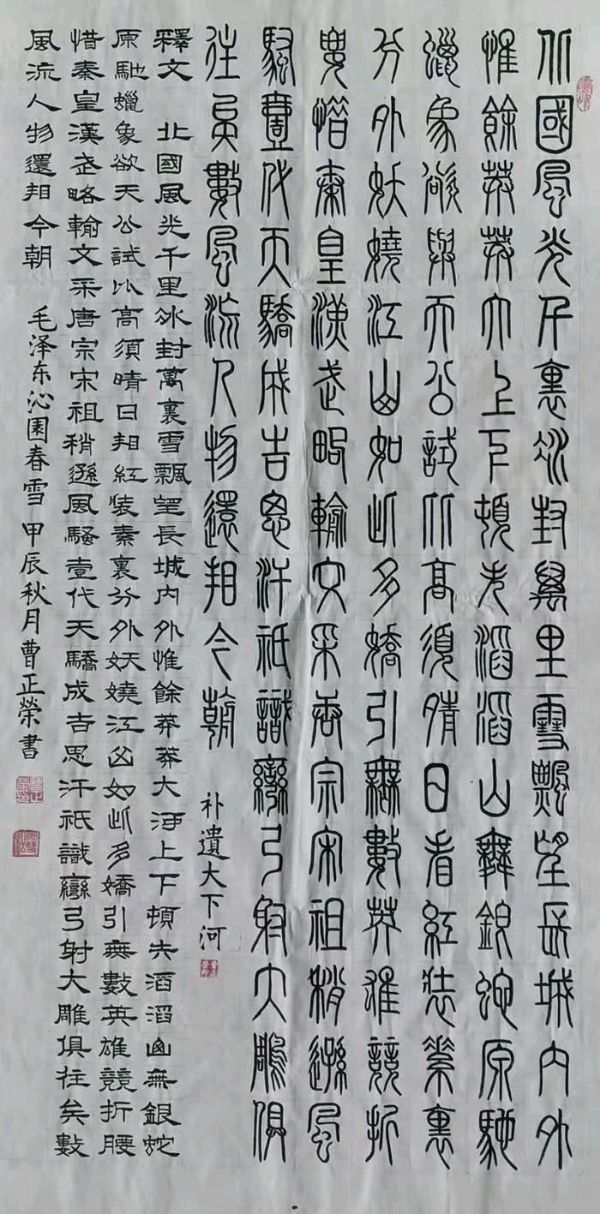 北國風光千裏冰封萬里雪飄望長城内外
惟餘莽莽大上下頓失滔滔山舞銀蛇原馳
蠟象欲與天公試比高須晴日看紅裝素裹
分外妖嬈江山如此多嬌引無數莽雄競折
要惜秦皇漢武略輸文采唐宗宋祖稍遜風
騷壹代天驕成吉思汗祇識彎弓射大雕俱
往矣數風流人物還看今朝
补遺大下河
釋文 北國風光千里冰封萬裏雪飄望長城内外惟餘莽莽大河上下頓失滔滔山無銀蛇
原馳蠟象欲天公試比高須晴日看紅裝素裹分外妖嬈江山如此多嬌引無數英雄競折腰
惜秦皇漢武略輸文采唐宗宋祖稍遜風騷壹代天驕成吉思汗祇識彎弓射大雕俱往矣數
風流人物還看今朝 毛泽东沁園春雪 甲辰秋月曹正榮書